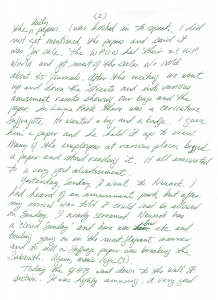 (2)
daily
the papers. I was booked in to speak, I did
not get mentioned the papers and said it
was for sale. The WPOW had their 2¢ W.P.
World and yet most of the sale we sold
about 45 journals. After the meeting we went
up and down the streets and into various
amusement resorts showing our bags and the
paper. In Luna Park there was a caricature
Suffragette. He wanted a bag and a badge. I gave
him a paper and he held it up to view.
Many of the employees at various places begged
a paper and stood reading it. It all amounted
to a very good advertisement.
Yesterday Sunday I went to Newark.
Had heard of an amusement park but after
my arrival was told it could not be allowed
on Sunday. I nearly screamed. Newark has
a closed Sunday and here was etc and
boating going on in the most flagrant manner
and to all of suffrage paper was breaking the
Sabbath. Again
Today the went down to the Wall St
section. It was highly amusing, a very good